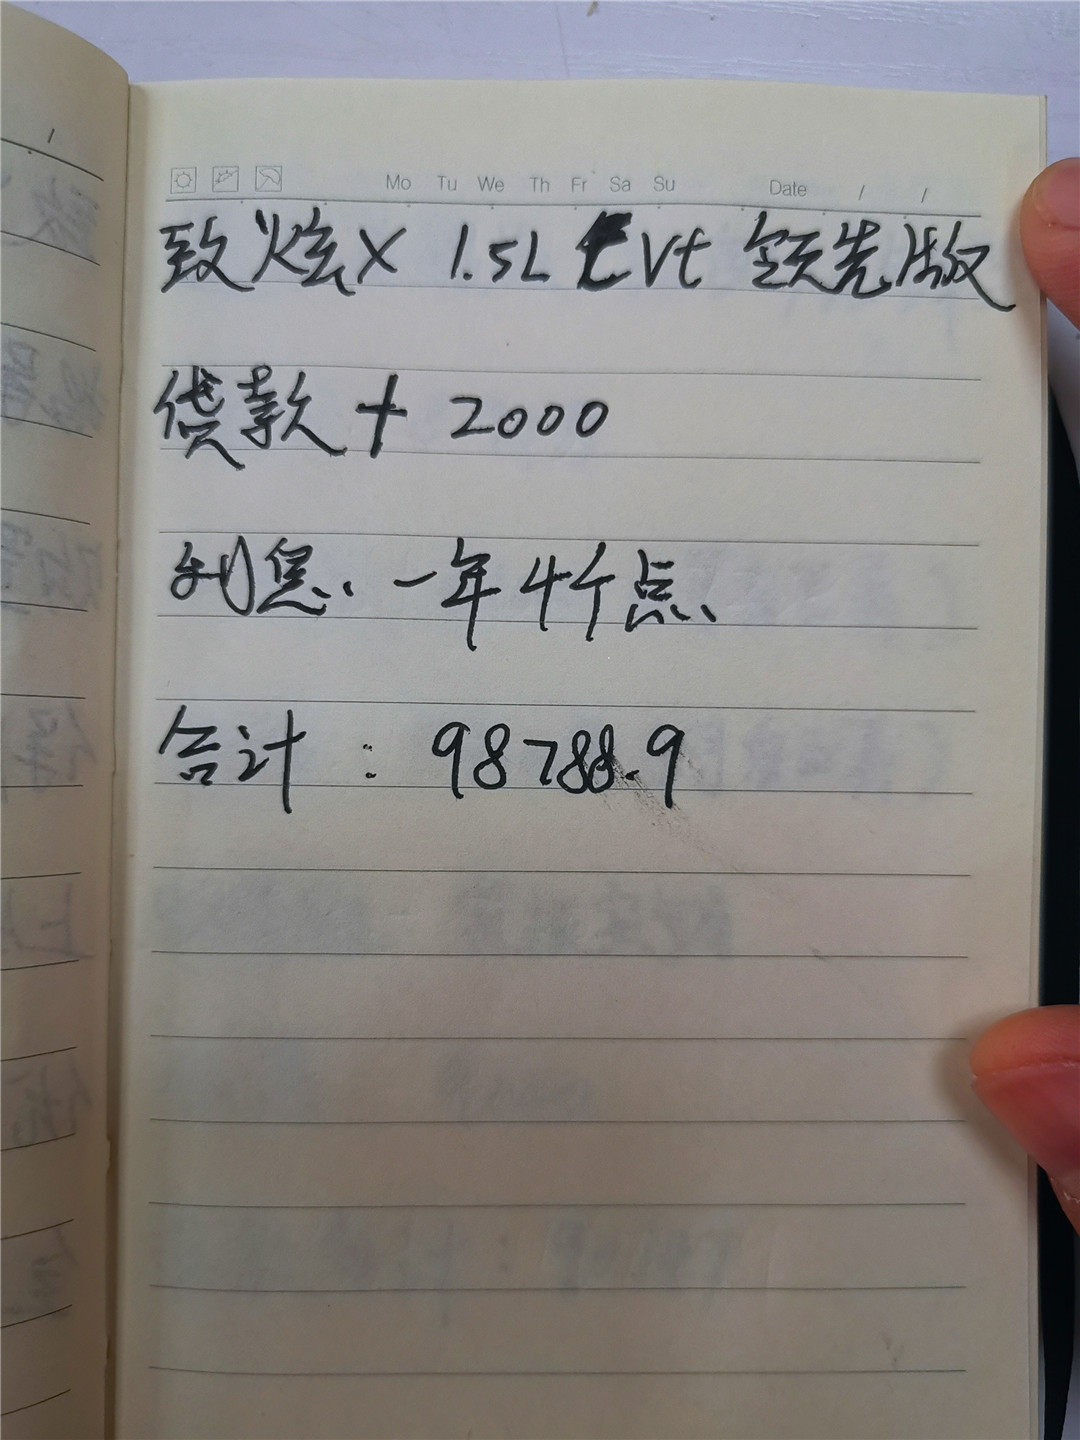 Mo Tu We Th Fr Sa Su Date / /
致炫X 1.5L CVt 领先版
贷款+2000
利息. 一年4个点.
合计：98788.9